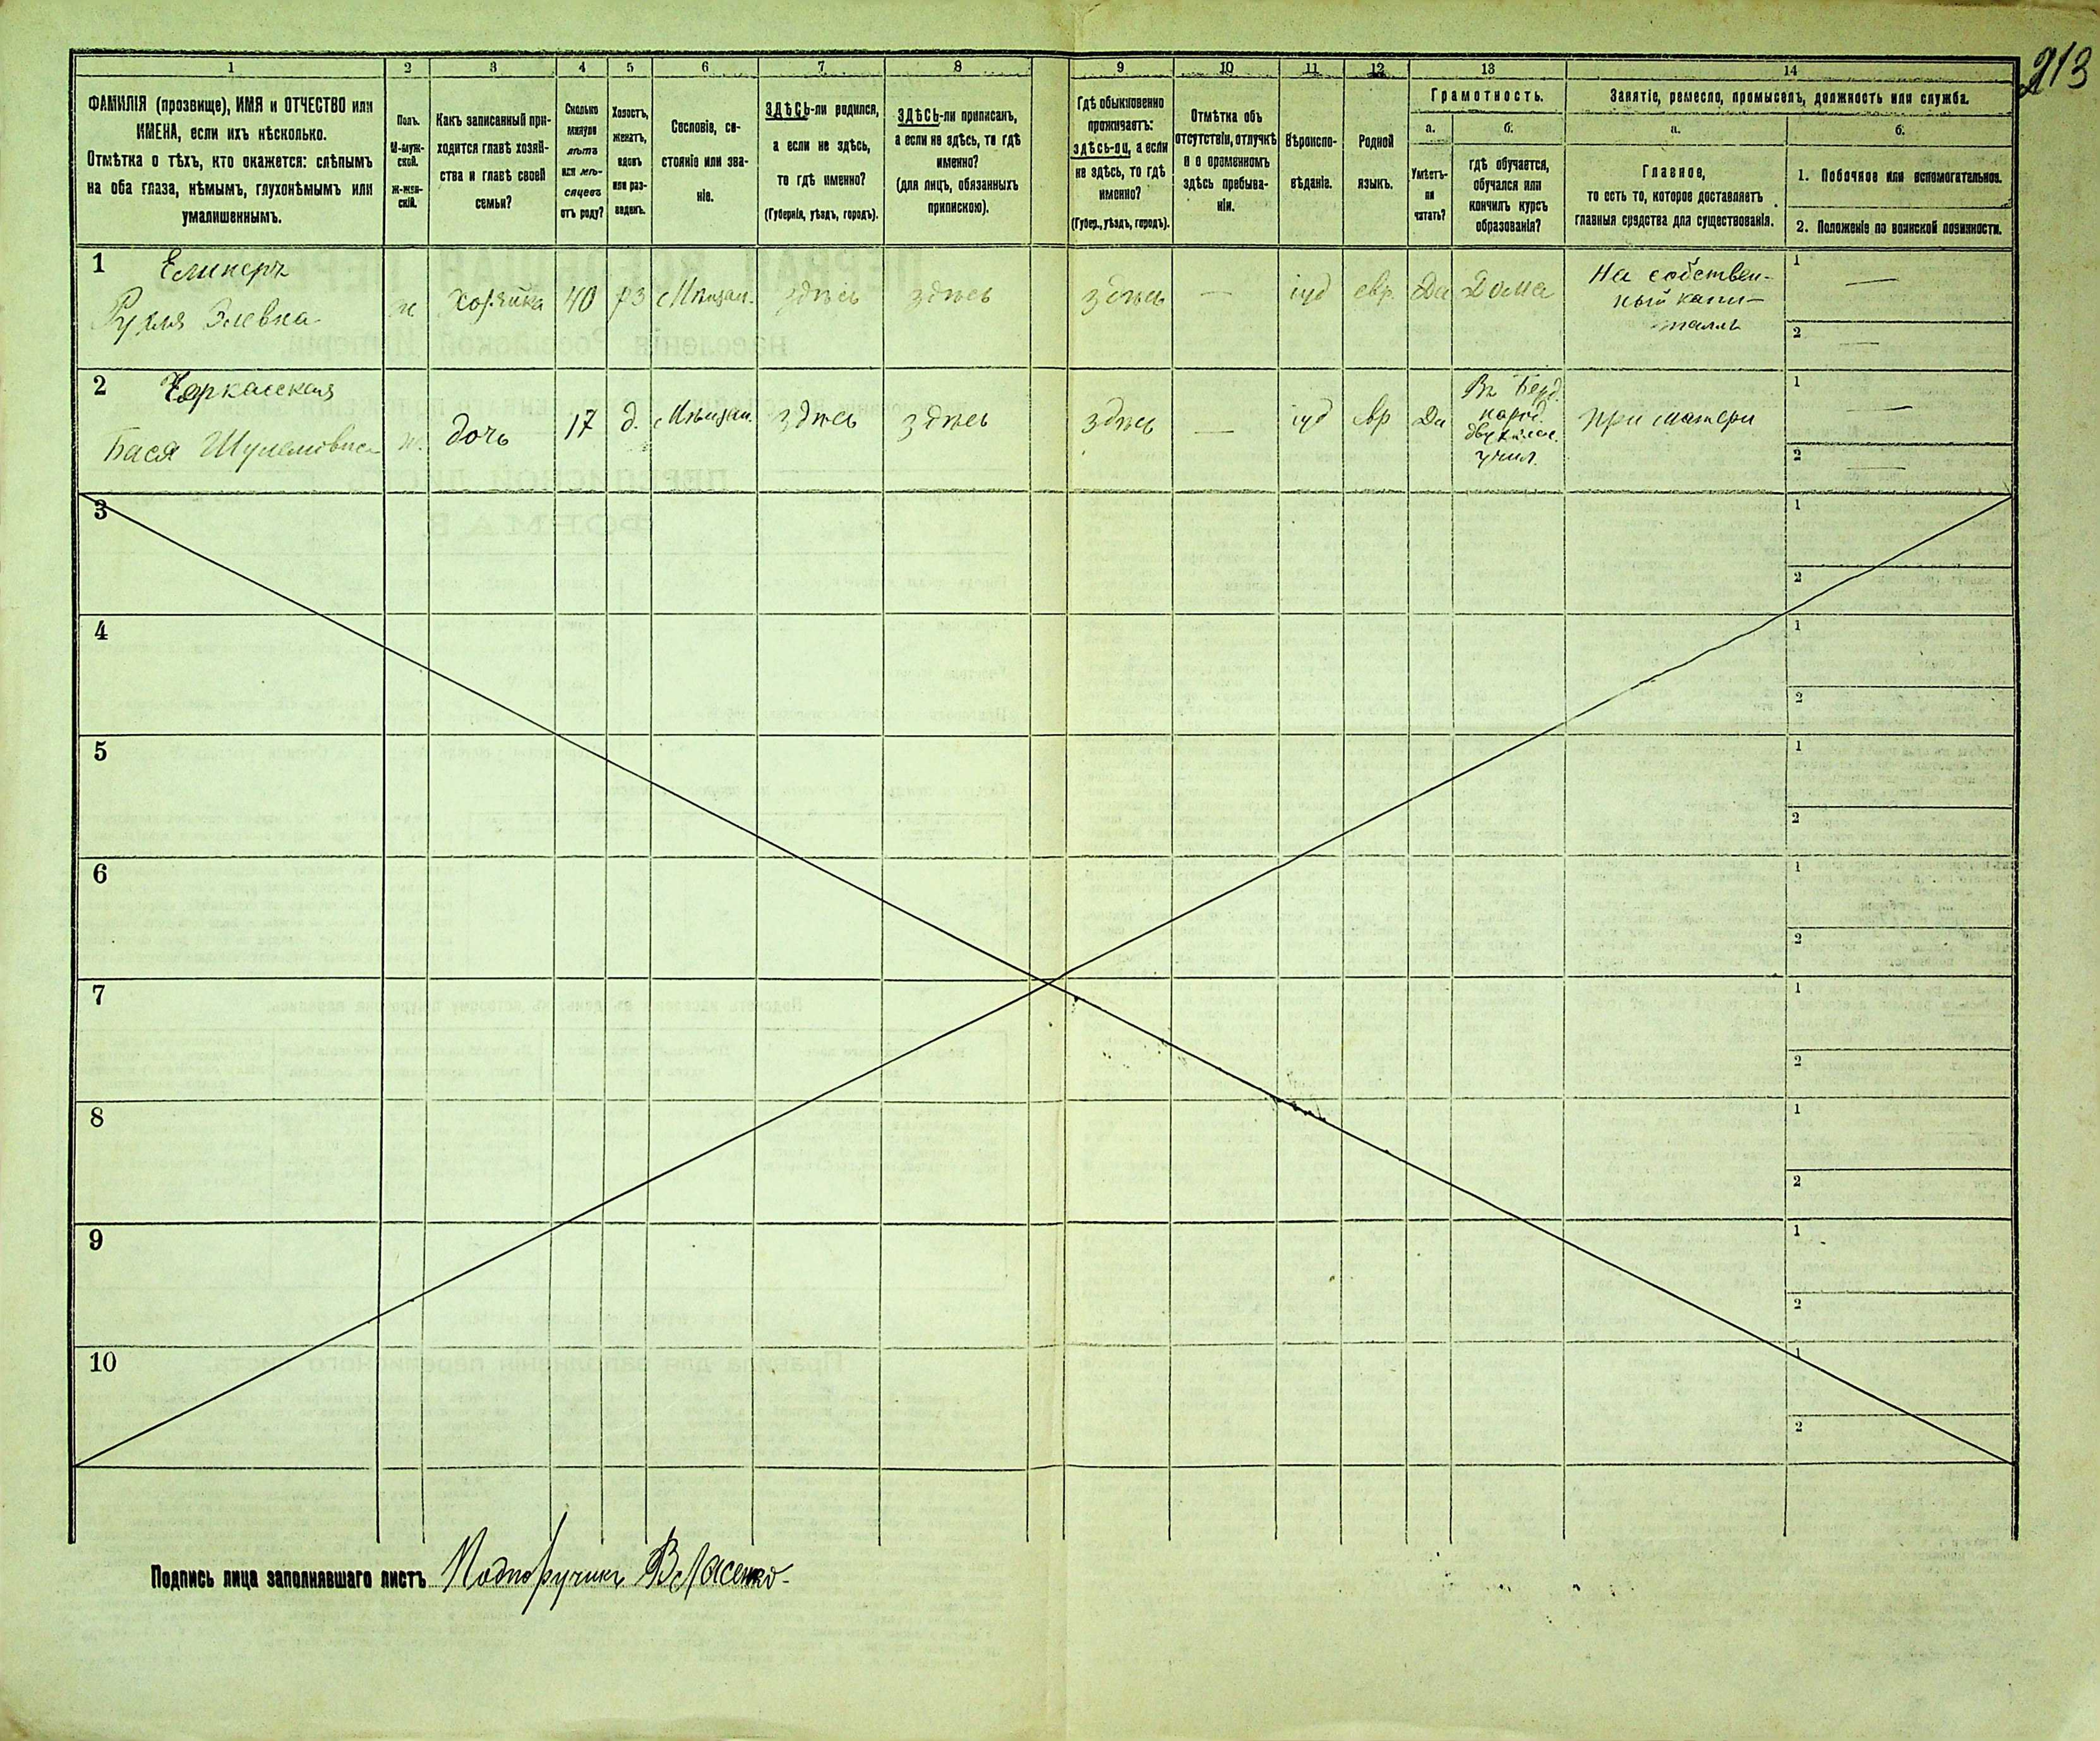 213
1 2 3 4 5 6 7 8 9 10 11 12 13 14
ФАМИЛІЯ (прозвище), ИМЯ и ОТЧЕСТВО или
ИМЕНА, если ихъ нѣсколько.
Отмѣтка о тѣхъ, кто окажется: слѣпымъ
на оба глаза, нѣмымъ, глухонѣмымъ или
умалишеннымъ.
Полъ.
М-муж-
ской.
Ж-жен-
скій.
Какъ записанный при-
ходится главѣ хозяй-
ства и главѣ своей
семьи?
Сколько
минуло
лѣтъ
или мѣ-
сяцевъ
отъ роду?
Холостъ,
женатъ,
вдовъ
или раз-
веденъ.
Сословіе, со-
стояніе или зва-
ніе.
ЗДѢСЬ-ли родился,
а если не здѣсь,
то гдѣ именно?
(Губернія, уѣздъ, городъ).
ЗДѢСЬ-ли приписан,
а если не здѣсь, то гдѣ
именно?
(для лицъ, обязанных
припискою).
Гдѣ обыкновенно
проживаетъ:
здѣсь-ли, а если
не здѣсь, то гдѣ
именно?
(Губер., уѣздъ, городъ).
Отмѣтка объ
отсутствіи, отлучкѣ
и о временномъ
здѣсь пребыва-
ніи.
Вѣроиспо-
вѣданіе.
Родной
языкъ.
Грамотность.
а.
Умѣетъ-
ли
читать?
б.
гдѣ обучается,
обучался или
кончилъ курсъ
образованія?
Занятіе, ремесло, промыселъ, должность или служба.
а.
Главное,
то есть то, которое доставляетъ
главныя средства для существованія.
б.
1. Побочное или вспомогательное.
2. Положеніе по воинской повинности.
1 Елинеръ
Рухля Элевна
ж Хозяйка 40 рз Мѣщан. здѣсь здѣсь здѣсь — іуд евр. Да Дома
На собствен-
ный капи-
талъ
1 —
2 —
2 Черкасская
Бася Шулемовна
ж. дочь 17 д. Мѣщан. здѣсь здѣсь здѣсь — іуд евр Да
Въ Берд.
народ.
двухклас.
учил.
при матери
1 —
2 —
3
1
2
4
1
2
5
1
2
6
1
2
7
1
2
8
1
2
9
1
2
10
1
2
Подпись лица заполнявшаго листъ Подпоручикъ Власенко